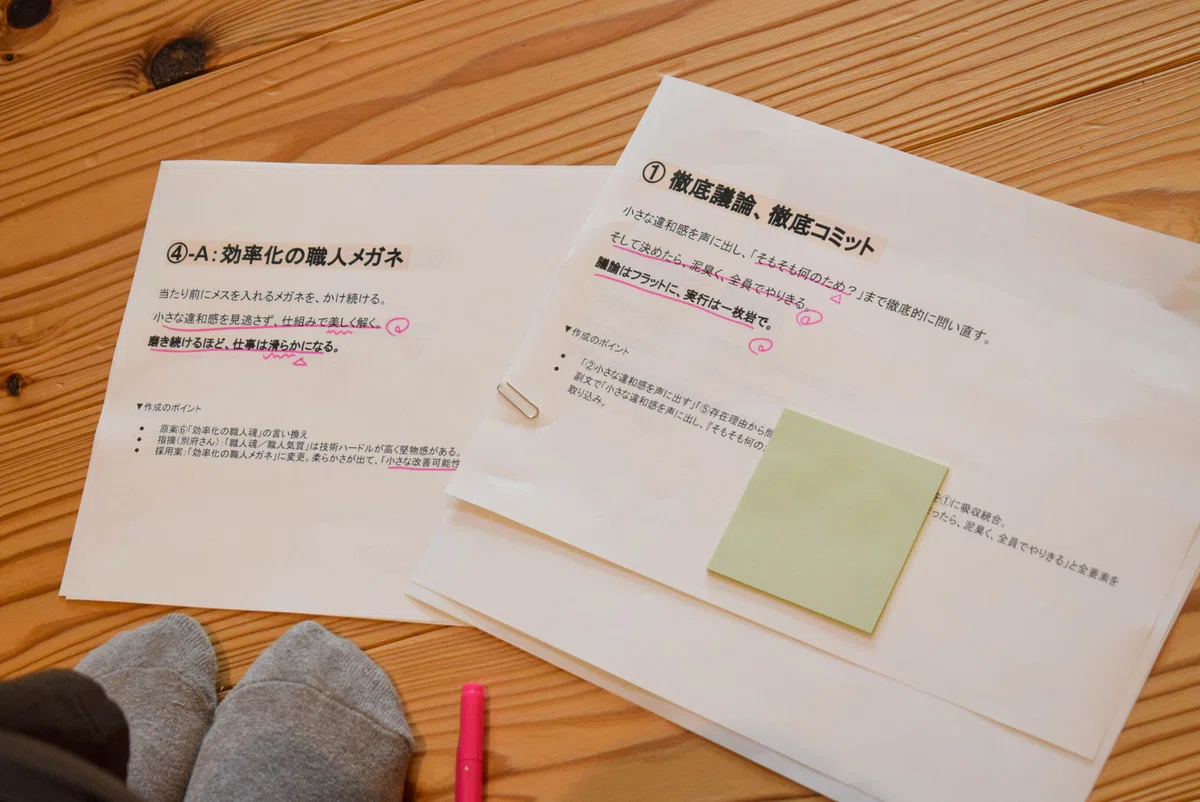 ④-A:効率化の職人メガネ
当たり前にメスを入れるメガネを、かけ続ける。
小さな違和感を見逃さず、仕組みで美しく解く。
磨き続けるほど、仕事は滑らかになる。
▼作成のポイント
• 原案⑥「効率化の職人魂」の言い換え
• 指摘(別府さん):「職人魂/職人気質」は技術ハードルが高く堅物感がある。
• 採用案:「効率化の職人メガネ」に変更。柔らかさが出て、「小さな改善可能性
① 徹底議論、徹底コミット
小さな違和感を声に出し、「そもそも何のため?」まで徹底的に問い直す。
そして決めたら、泥臭く、全員でやりきる。
議論はフラットに、実行は一枚岩で。
▼作成のポイント
• 「②小さな違和感を声に出す」「⑤存在理由から問 を①に吸収統合。
• 副文で「小さな違和感を声に出し、『そもそも何の ったら、泥臭く、全員でやりきる」と全要素を
取り込み。